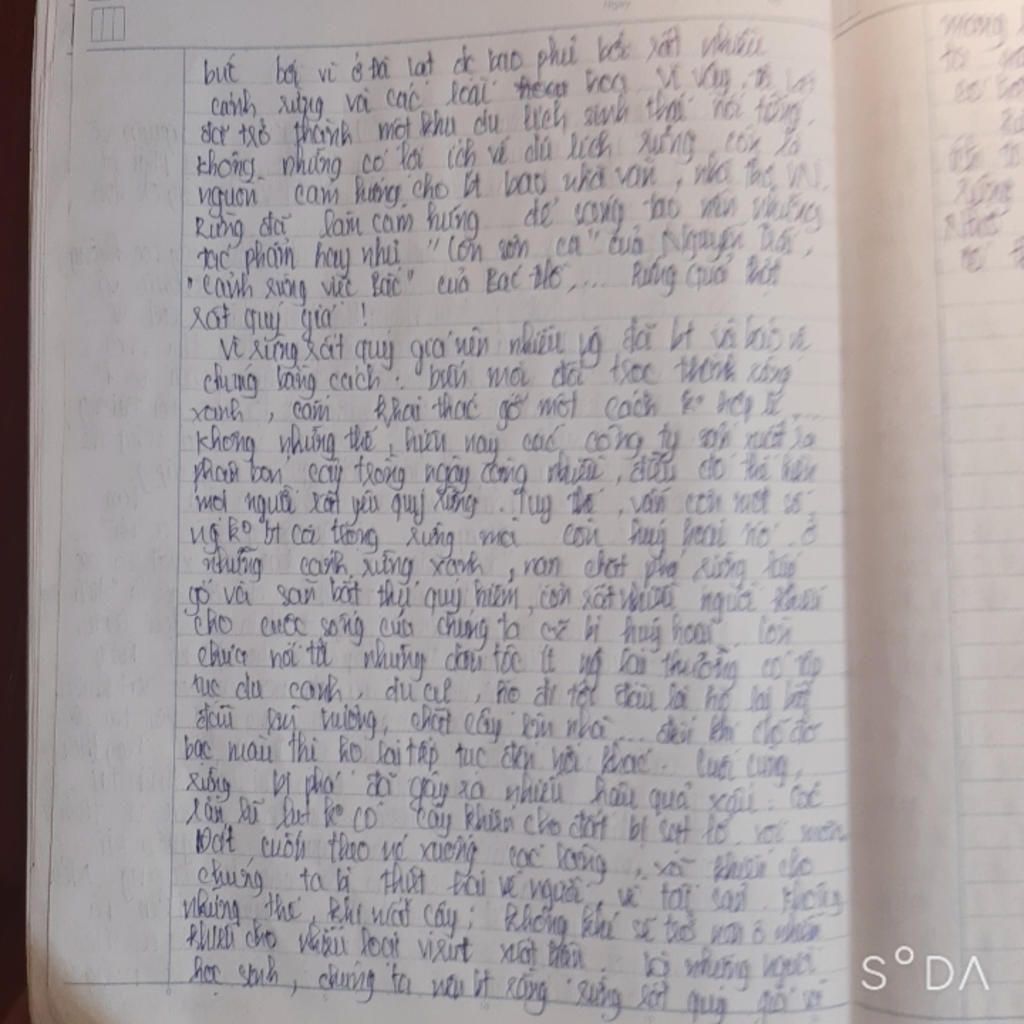 bưc bởi vì ở Đà Lạt đc bao phủ bởi rất nhiều
cánh rừng và các loài hoa. Vì vậy, Đà Lạt
đã trở thành một khu du lịch sinh thái nổi tiếng.
không những có lợi ích về du lịch rừng còn là
nguồn cảm hứng cho bt bao nhà văn, nhà thơ VN.
Rừng đã làm cảm hứng để sáng tạo nên những
tác phẩm hay như "Côn sơn ca" của Nguyễn Trãi,
"cảnh rừng việt Bắc" của Bác Hồ,... Rừng quả thật
rất quý giá!
Vì rừng rất quý giá nên nhiều ng đã bt và bảo vệ
chúng bằng cách: biến mọi đồi trọc thành rừng
xanh, cấm khai thác gỗ một cách ko hợp lí...
không những thế, hiện nay các công ty sản xuất ra
phân bón cây trồng ngày càng nhiều, điều đó thể hiện
mọi người rất yêu quý rừng. Tuy thế, vẫn còn một số
ng ko bt coi trọng rừng mà còn huỷ hoại nó. ở
những cánh rừng xanh, nạn chặt phá rừng lấy
gỗ và săn bắt thú quý hiếm, còn rất nhiều người khiến
cho cuộc sống của chúng ta cứ bị huỷ hoại. Còn
chưa nói tới những dân tộc ít ng lại thường có tập
tục du canh, du cư, họ đi tới đâu lại họ lại bắt
đầu làm nương, chặt cây làm nhà... đến khi chỗ đó
bạc màu thì họ lại tiếp tục đến nơi khác. Cuối cùng,
rừng bị phá đã gây ra nhiều hậu quả xấu: các
lần lũ lụt ko có cây khiến cho đất bị sạt lở, rồi nước
đất cuốn theo nó xuống các làng, xã khiến cho
chúng ta bị thiệt hại về người, về tài sản. Không
những thế, khi mất cây, không khí sẽ trở nên ô nhiễm
khiến cho nhiều loại virut xuất hiện. Là những người
học sinh, chúng ta nên bt rằng rừng rất quý giá và
SODA